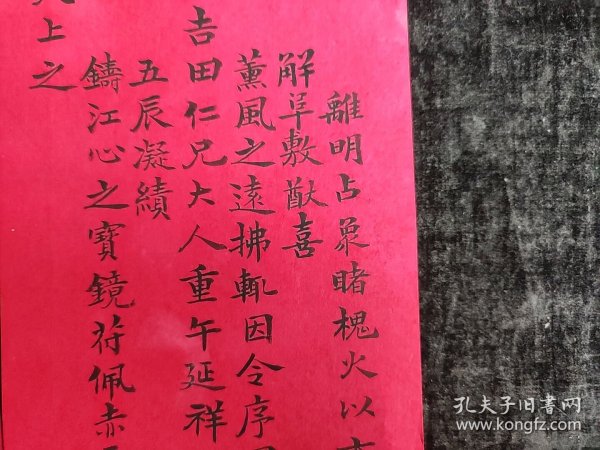 離明占象睹槐火以
解阜敷猷喜
薰風之遠拂輒因令序
吉田仁兄大人重午延祥
五辰凝績
鑄江心之寶鏡符佩赤
上之
孔夫子旧书网
www.kongfz.com